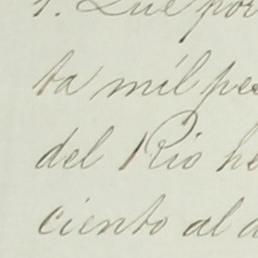 1. Que por
ta mil pe
del Rio he
ciento al a